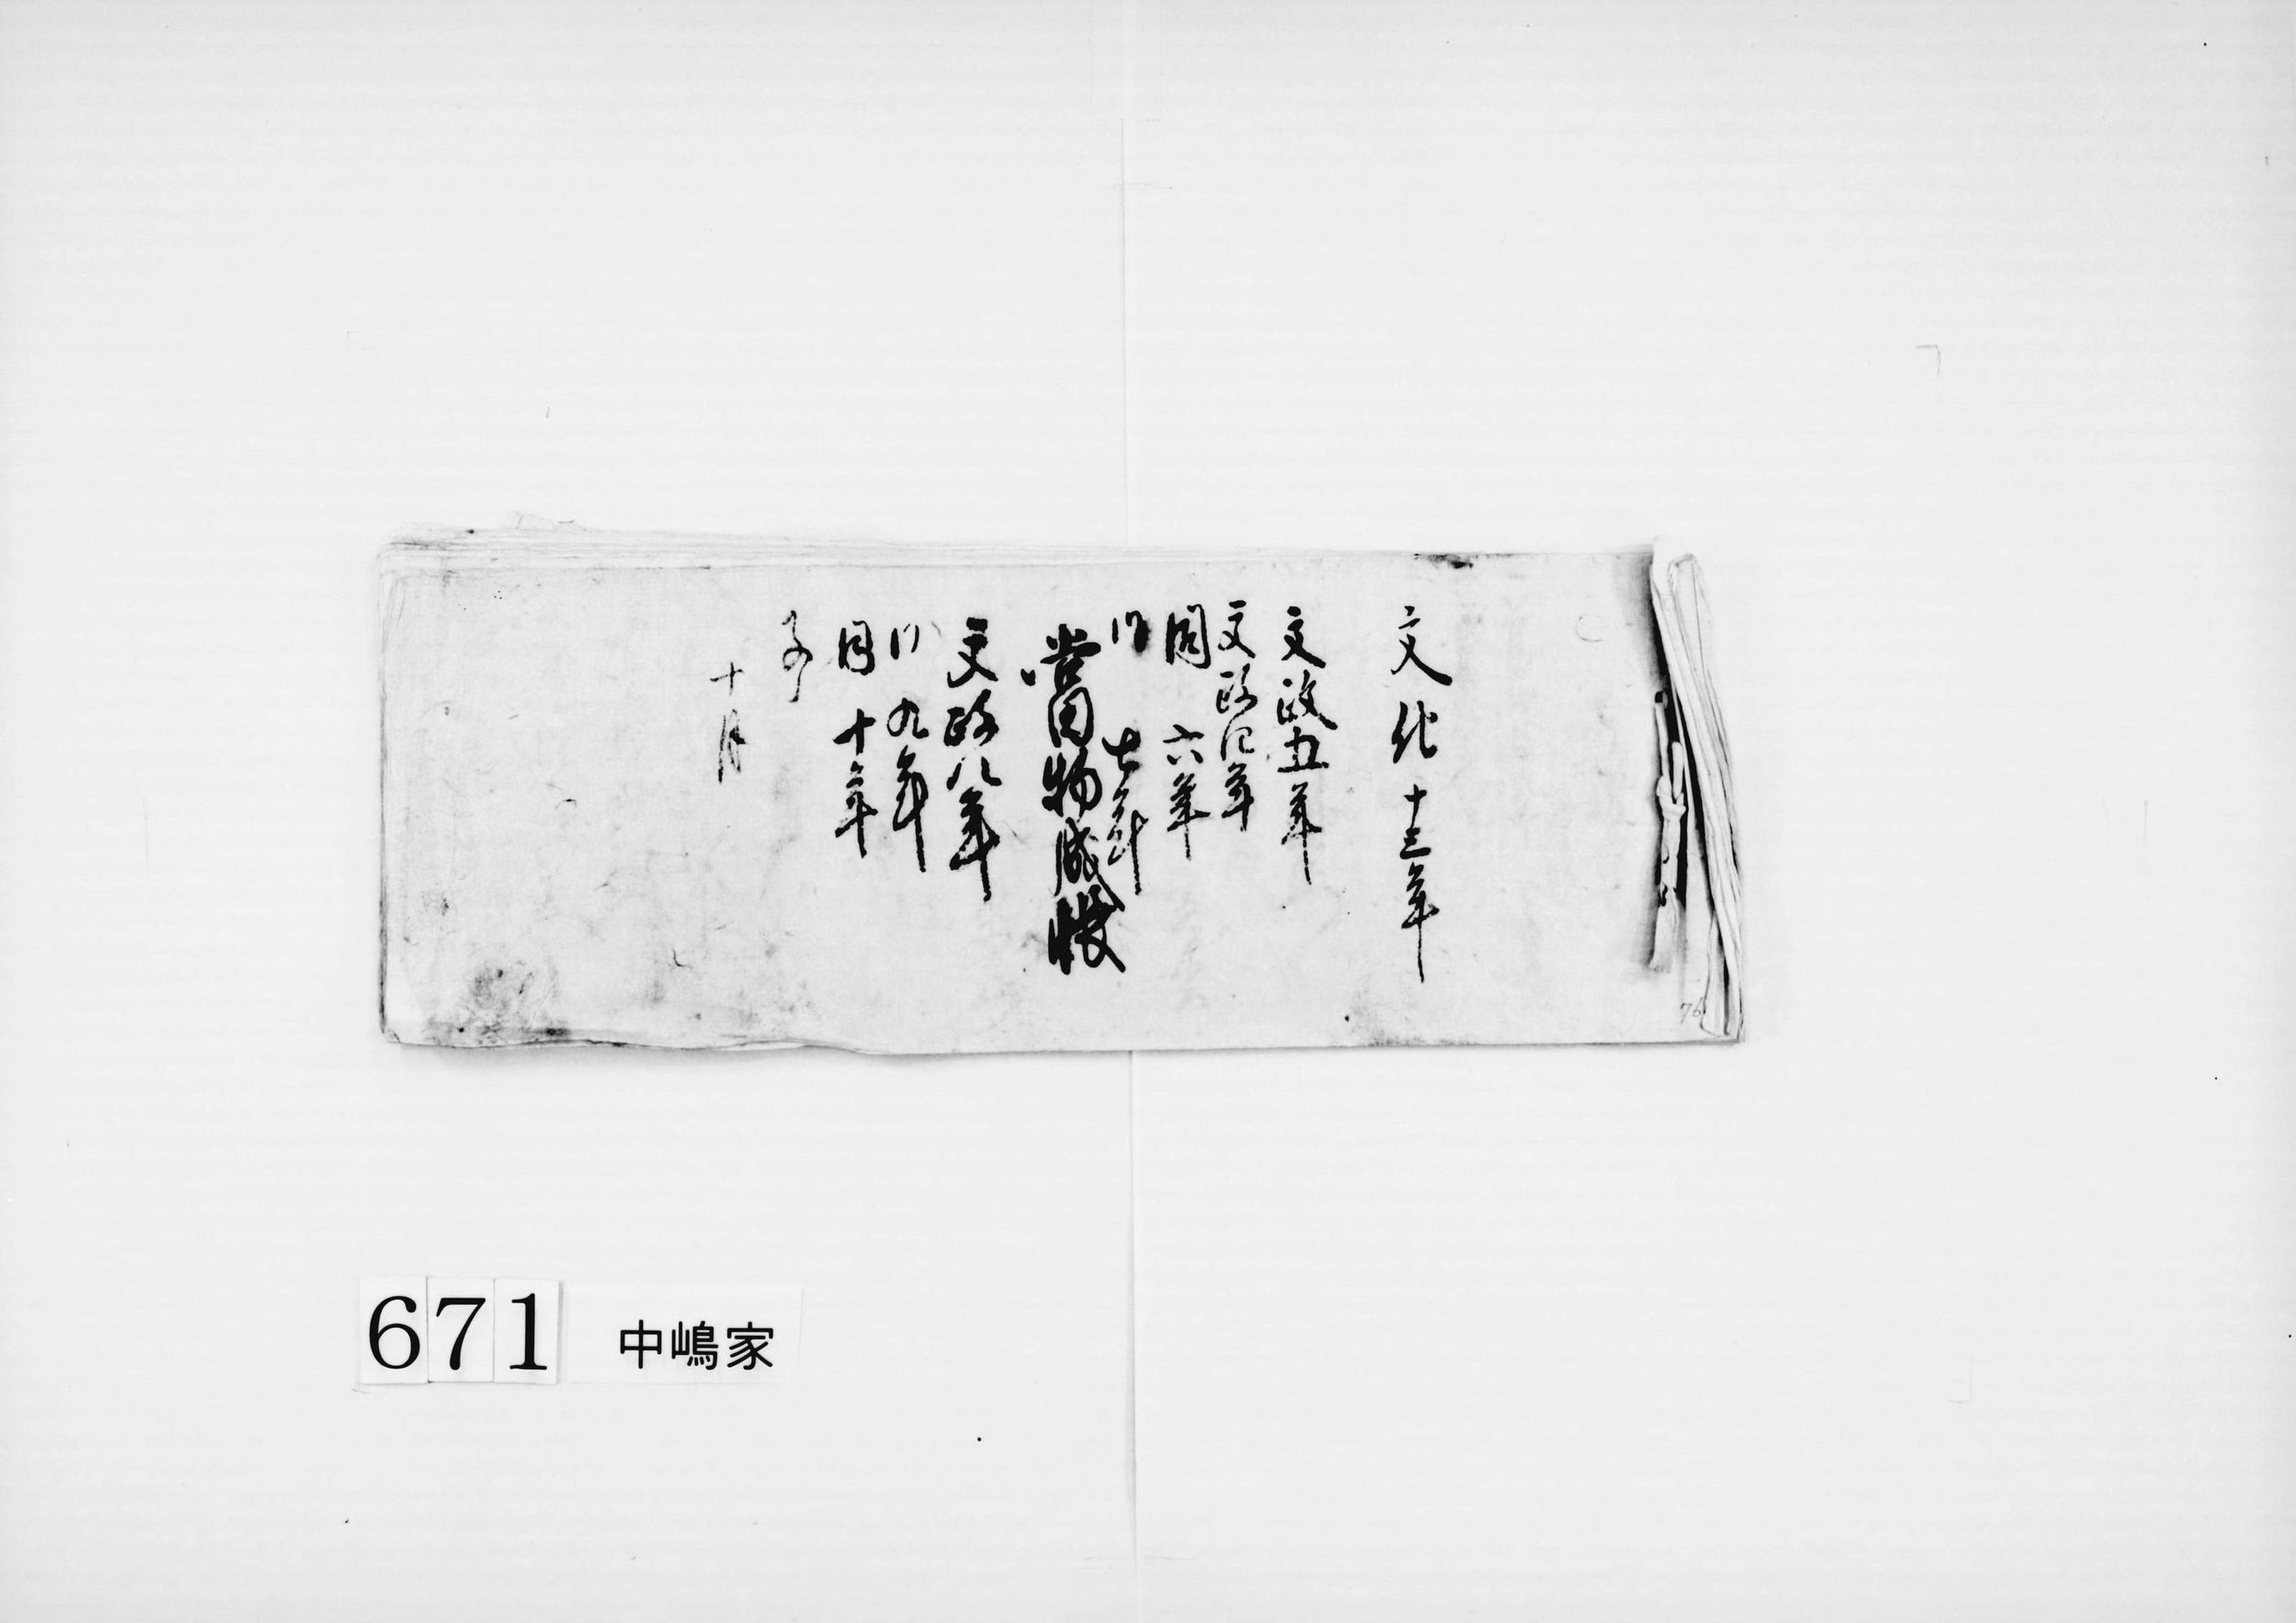 文化十三年
文政五年
文政四年
同 六年
同 七年
當田物成帳
文政八年
同 九年
同 十年
子
十月
76
671 中嶋家